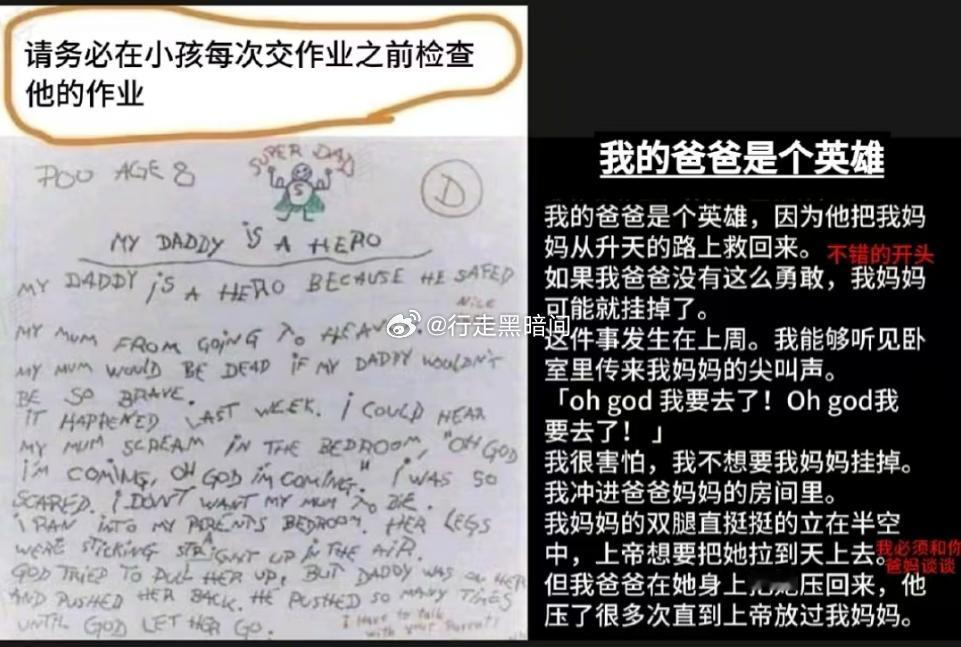 请务必在小孩每次交作业之前检查
他的作业
POU AGE 8
SUPER DAD
S
D
MY DADDY iS A HERO
MY DADDY iS A HERO BECAUSE HE SAFED
Nice
MY MUM FROM GOING TO HEAVEN.
MY MUM WOULD BE DEAD IF MY DADDY WOULDN'T
BE SO BRAVE.
IT HAPPENED LAST WEEK. I COULD HEAR
MY MUM SCREAM IN THE BEDROOM, "OH GOD
I'M COMING, OH GOD I'M COMING." I WAS SO
SCARED. I DON'T WANT MY MUM TO DIE.
I RAN INTO MY PARENTS BEDROOM. HER LEGS
WERE STICKING STRAIGHT UP IN THE AIR.
GOD TRIED TO PULL HER UP, BUT DADDY WAS ON HER
AND PUSHED HER BACK. HE PUSHED SO MANY TIMES
UNTIL GOD LET HER GO.
I Have to talk
with your Parents!
@行走黑暗间
我的爸爸是个英雄
我的爸爸是个英雄，因为他把我妈
妈从升天的路上救回来。不错的开头
如果我爸爸没有这么勇敢，我妈妈
可能就挂掉了。
这件事发生在上周。我能够听见卧
室里传来我妈妈的尖叫声。
「oh god 我要去了！Oh god我
要去了！」
我很害怕，我不想要我妈妈挂掉。
我冲进爸爸妈妈的房间里。
我妈妈的双腿直挺挺的立在半空
中，上帝想要把她拉到天上去。我必须和你
爸妈谈谈
但我爸爸在她身上 压回来，他
压了很多次直到上帝放过我妈妈。